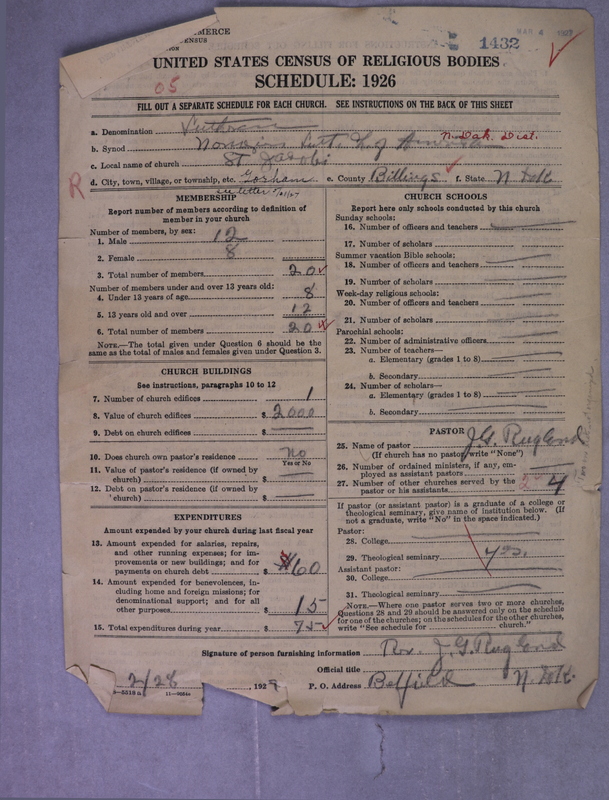 MERCE
CENSUS
1432
MAR 4 1927
UNITED STATES CENSUS OF RELIGIOUS BODIES
SCHEDULE: 1926
05
FILL OUT A SEPARATE SCHEDULE FOR EACH CHURCH. SEE INSTRUCTIONS ON THE BACK OF THIS SHEET
a. Denomination Lutheran
b. Synod Norwegian Luth. of America N. Dak. Dist.
c. Local name of church St Jacobi
d. City, town, village, or township, etc. Gorham e. County Billings f. State N. Dak
R
MEMBERSHIP
Report number of members according to definition of
member in your church
Number of members, by sex:
1. Male 12
2. Female 8
3. Total number of members 20
Number of members under and over 13 years old:
4. Under 13 years of age 8
5. 13 years old and over 12
6. Total number of members 20
NOTE.—The total given under Question 6 should be the
same as the total of males and females given under Question 3.
CHURCH BUILDINGS
See instructions, paragraphs 10 to 12
7. Number of church edifices 1
8. Value of church edifices $ 2000
9. Debt on church edifices $
10. Does church own pastor's residence No
Yes or No
11. Value of pastor's residence (if owned by
church) $
12. Debt on pastor's residence (if owned by
church) $
EXPENDITURES
Amount expended by your church during last fiscal year
13. Amount expended for salaries, repairs,
and other running expenses; for im-
provements or new buildings; and for
payments on church debt $ 60
14. Amount expended for benevolences, in-
cluding home and foreign missions; for
denominational support; and for all
other purposes $ 15
15. Total expenditures during year $ 75
CHURCH SCHOOLS
Report here only schools conducted by this church
Sunday schools:
16. Number of officers and teachers
17. Number of scholars
Summer vacation Bible schools:
18. Number of officers and teachers
19. Number of scholars
Week-day religious schools:
20. Number of officers and teachers
21. Number of scholars
Parochial schools:
22. Number of administrative officers
23. Number of teachers—
a. Elementary (grades 1 to 8)
b. Secondary
24. Number of scholars—
a. Elementary (grades 1 to 8)
b. Secondary
PASTOR
25. Name of pastor J.G. Rugland
(If church has no pastor, write "None")
26. Number of ordained ministers, if any, em-
ployed as assistant pastors
27. Number of other churches served by the
pastor or his assistants 4
If pastor (or assistant pastor) is a graduate of a college or
theological seminary, give name of institution below. (If
not a graduate, write "No" in the space indicated.)
Pastor:
28. College
29. Theological seminary yes.
Assistant pastor:
30. College
31. Theological seminary
NOTE.—Where one pastor serves two or more churches,
Questions 28 and 29 should be answered only on the schedule
for one of the churches; on the schedules for the other churches,
write "See schedule for church."
Signature of person furnishing information Rev. J. G. Rugland
Official title
2/28, 1927 P. O. Address Belfield N. Dak.